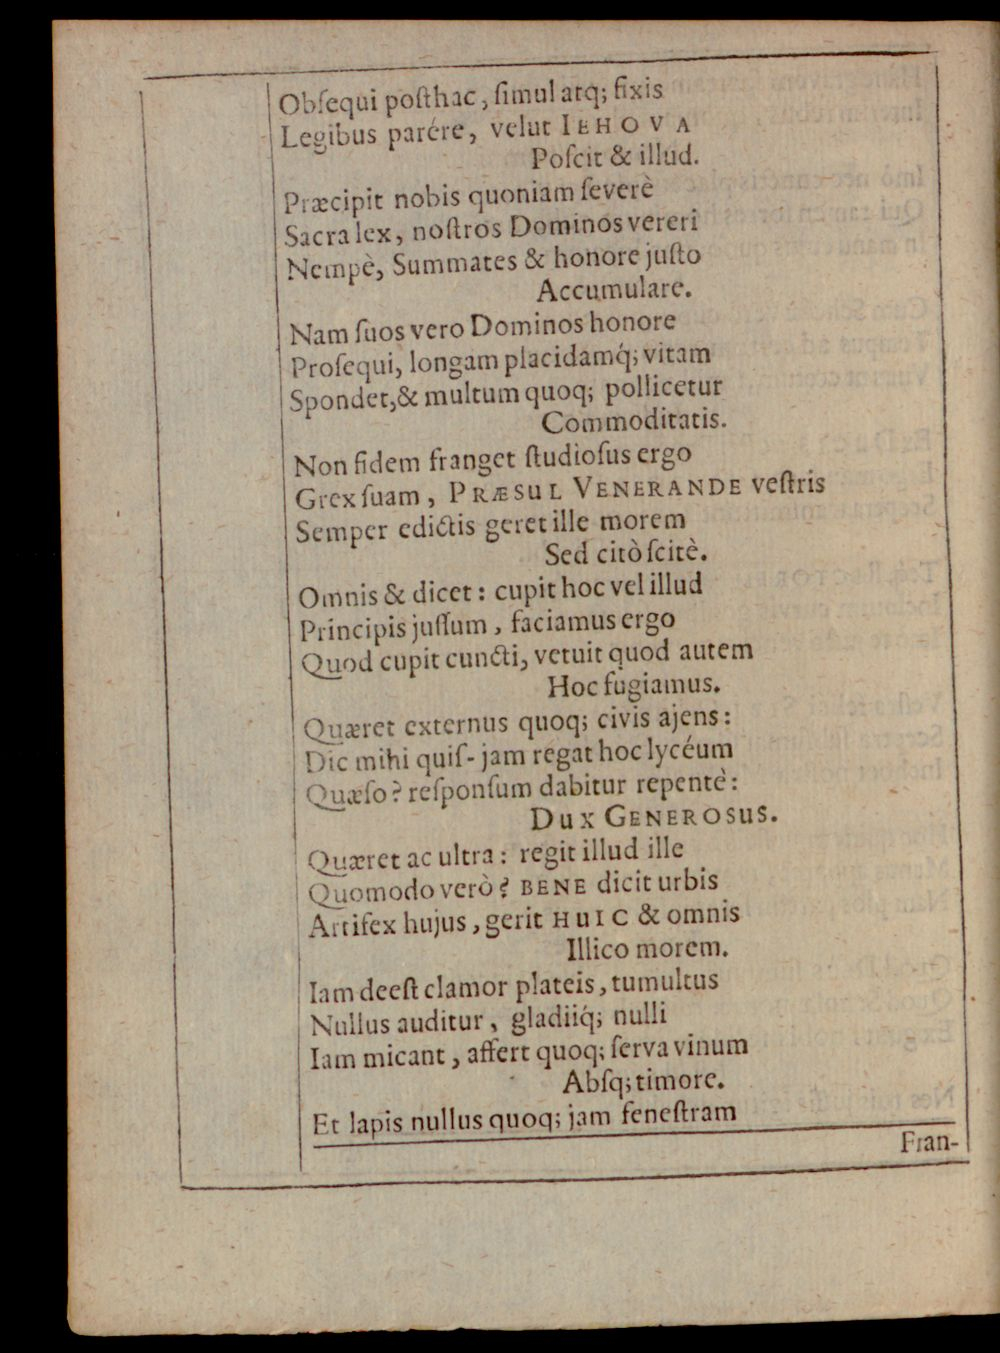 Obſequi poſthac, ſimul atq; fixis
Legibus parére, velut IEHOVA
Poſcit & illud.
Præcipit nobis quoniam ſeverè
Sacra lex, noſtros Dominos vereri
Nempè, Summates & honore juſto
Accumulare.
Nam ſuos vero Dominos honore
Proſequi, longam placidamq́; vitam
Spondet,& multum quoq; pollicetur
Commoditatis.
Non fidem franget ſtudioſus ergo
Grex ſuam, PRÆSUL VENERANDE veſtris
Semper edictis geret ille morem
Sed citò ſcitè.
Omnis & dicet: cupit hoc vel illud
Principis juſſum, faciamus ergo
Quod cupit cuncti, vetuit quod autem
Hoc fugiamus.
Quæret externus quoq; civis ajens:
Dic mihi quiſ-jam regat hoc lycéum
Quæſo? reſponſum dabitur repentè:
DUX GENEROSUS.
Quæret ac ultra: regit illud ille
Quomodo verò? BENE dicit urbis
Artifex hujus, gerit HUIC & omnis
Illico morem.
Iam deeſt clamor plateis, tumultus
Nullus auditur, gladiiq́; nulli
Iam micant, affert quoq; ſerva vinum
Abſq; timore.
Et lapis nullus quoq; jam feneſtram
Fran-